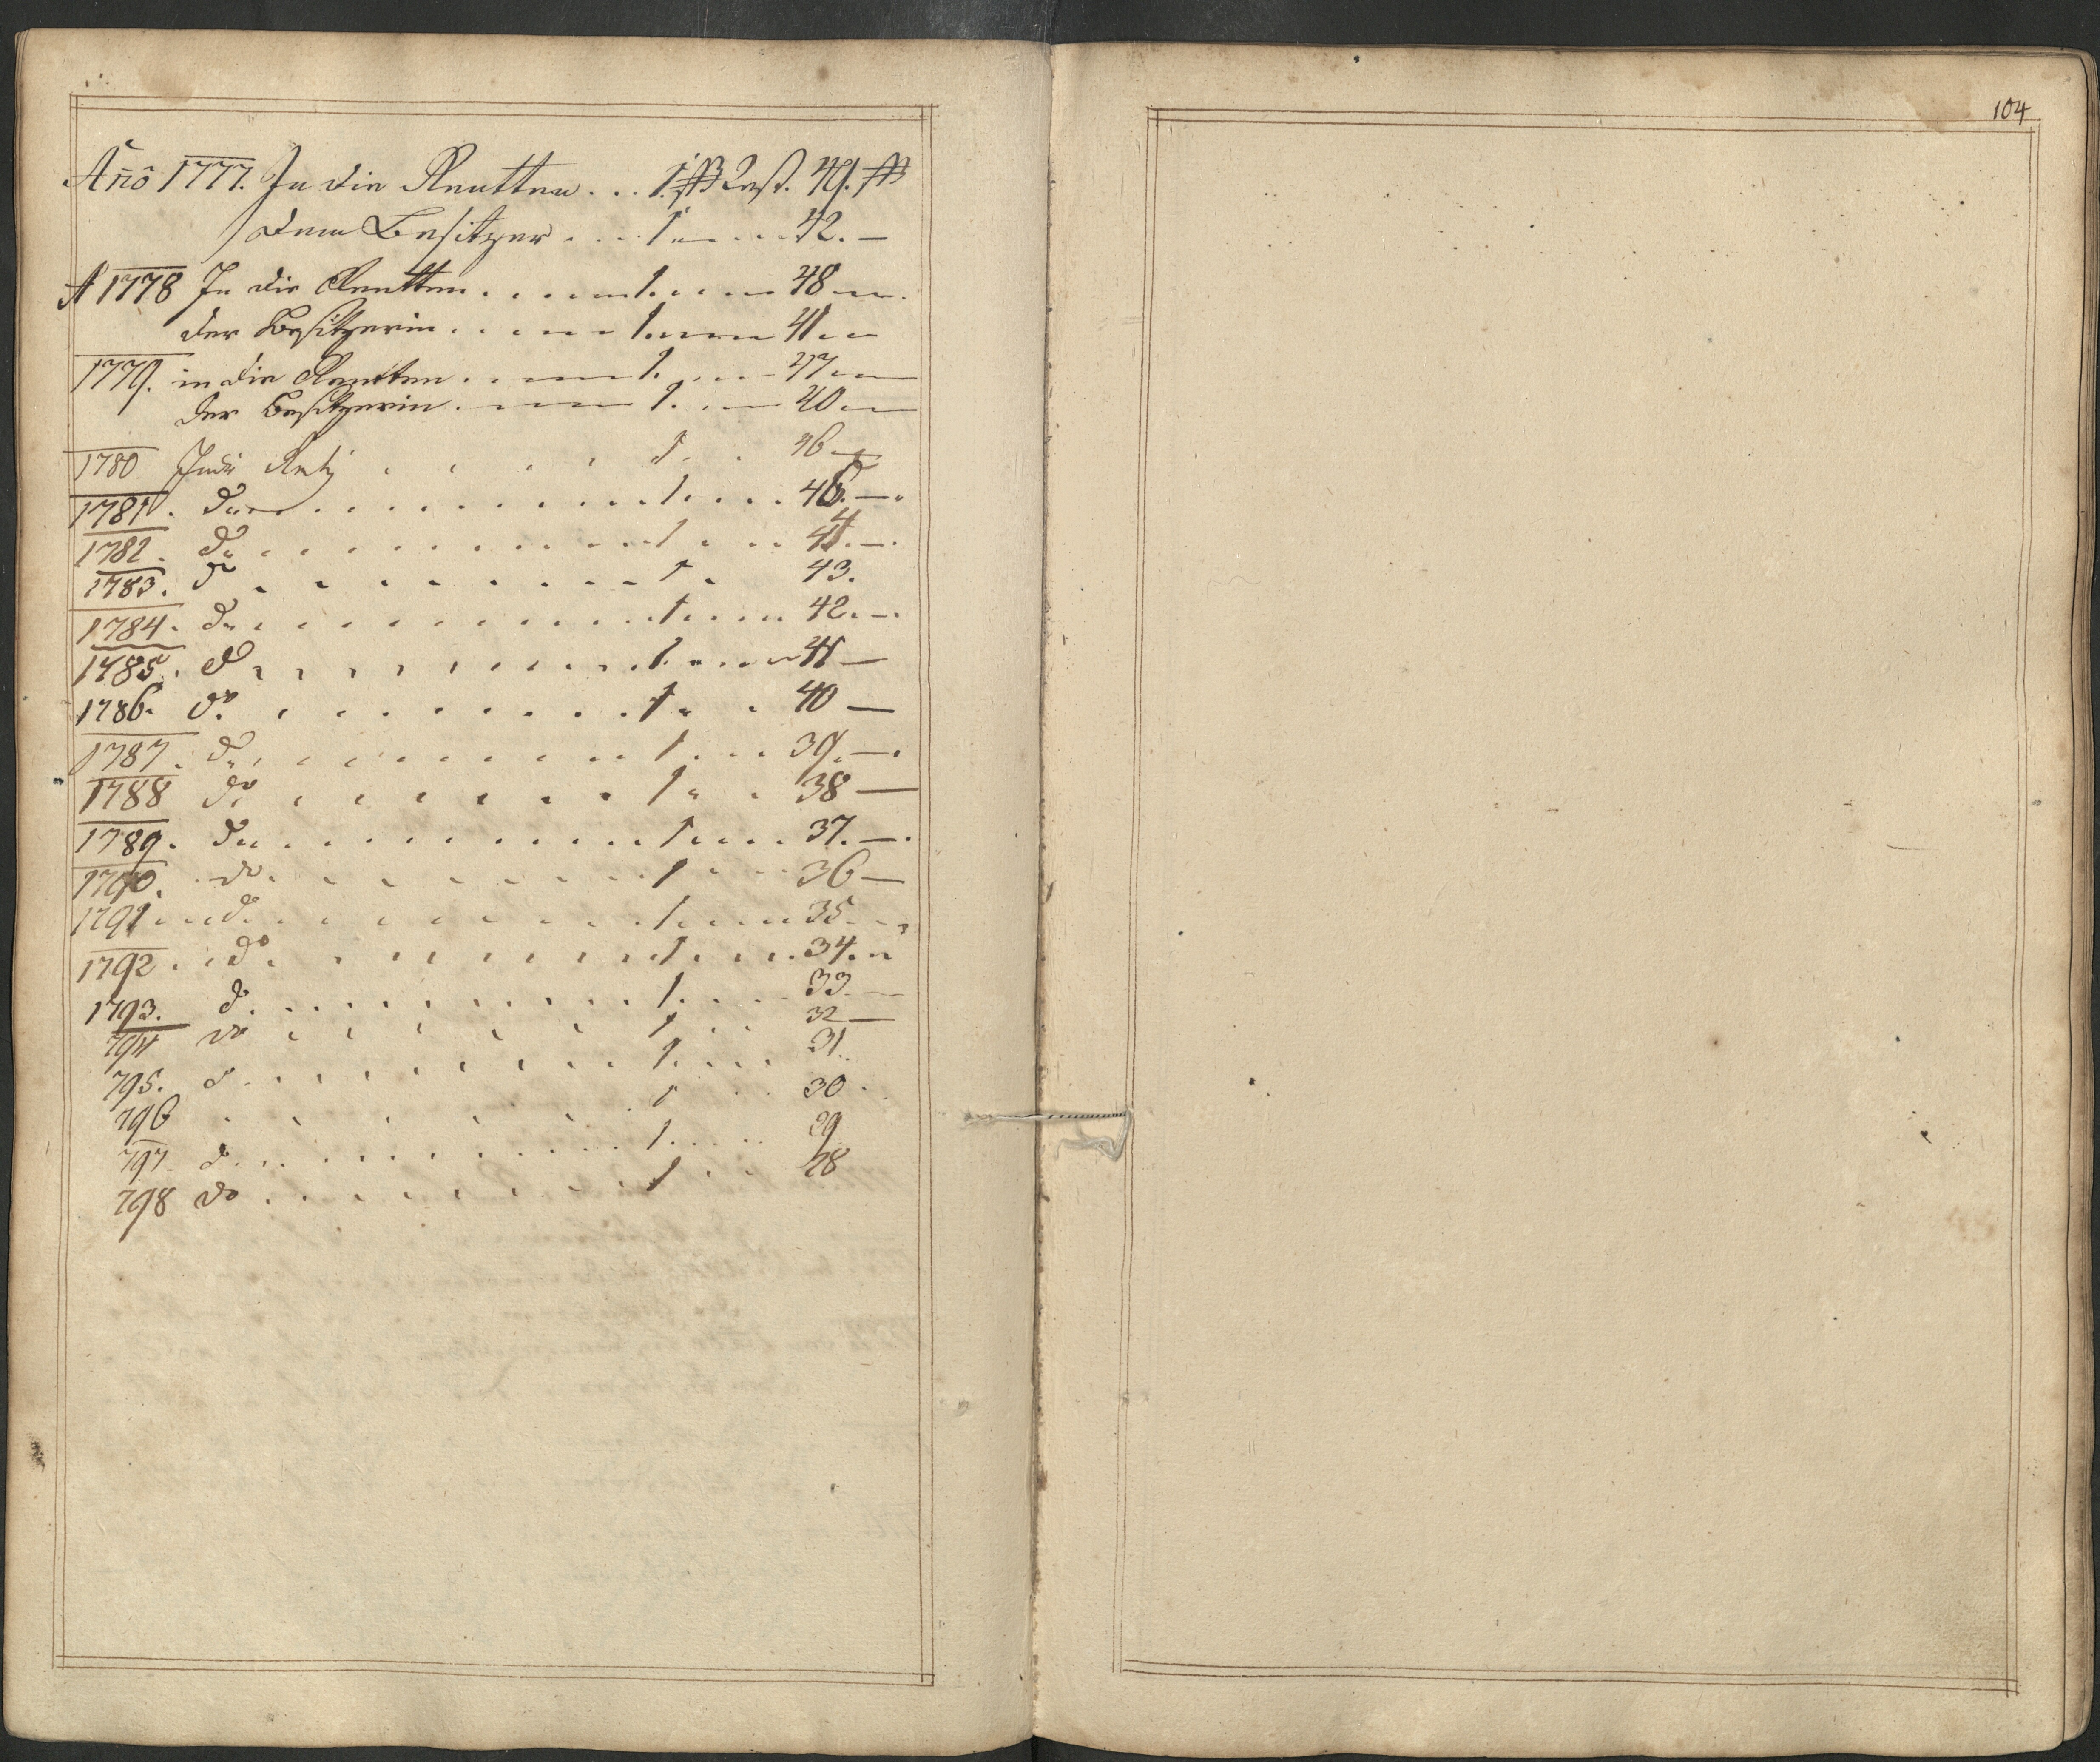 Año 1777. In die Rentten . . . 1. ß Rest. 49. ß
dem Besitzer . . . 1 . . . . 42. —
A 1778 In die Rentten . . . . . . 1. . . . . 48 — .
der Besitzerin . . . . . . 1. . . . 41 . —
1779. in die Rentten . . . . . 1. . . . 47 . —
der Besitzerin . . . . . 1. . . 40 . —
1780 Indie Rent . . . . . 1 . . 46 —
1781. do . . . . . . . . . . 1 . . . . 45. — .
1782. do . . . . . . . . . . 1 . . . 44. — .
1783. do . . . . . . . . . 1 . 43.
1784. do . . . . . . . . . . 1 . . . . 42. — .
1785. do . . . . . . . . . . 1. . . . . 41 —
1786. do . . . . . . . . . 1 . . 40 —
1787. do . . . . . . . . . . 1 . . . 39. — .
1788 do . . . . . . . . 1 . . 38 —
1789. do . . . . . . . . . . 1 . . . . 37. — .
1790. do . . . . . . . . . 1 . . 36 —
1791 . . do . . . . . . . . . . 1 . . . . 35 . .
1792 . . do . . . . . . . . . . 1 . . . . 34. .
1793. do . . . . . . . . . . 1. . . . 33. —
794 do . . . . . . 1 . . 32 —
795. do . . . . . . . . . . 1. . . . 31.
796 . . . . . . . 1 . . 30 .
797. do . . . . . . . . . . . 1. . . . . 29
798 do . . . . . . . . . 1 . . 28
104